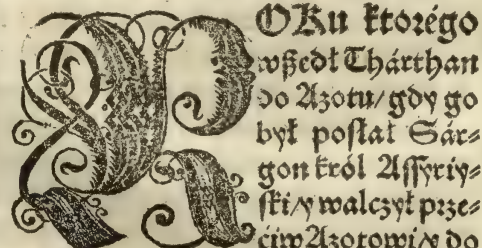 ROKu którégo
wßedł Thárthan
do Azotu/ gdy go
był posłał Sár⸗
gon król Assyriy⸗
ski/ y walczył prze⸗
ciw Azotowi/ y do